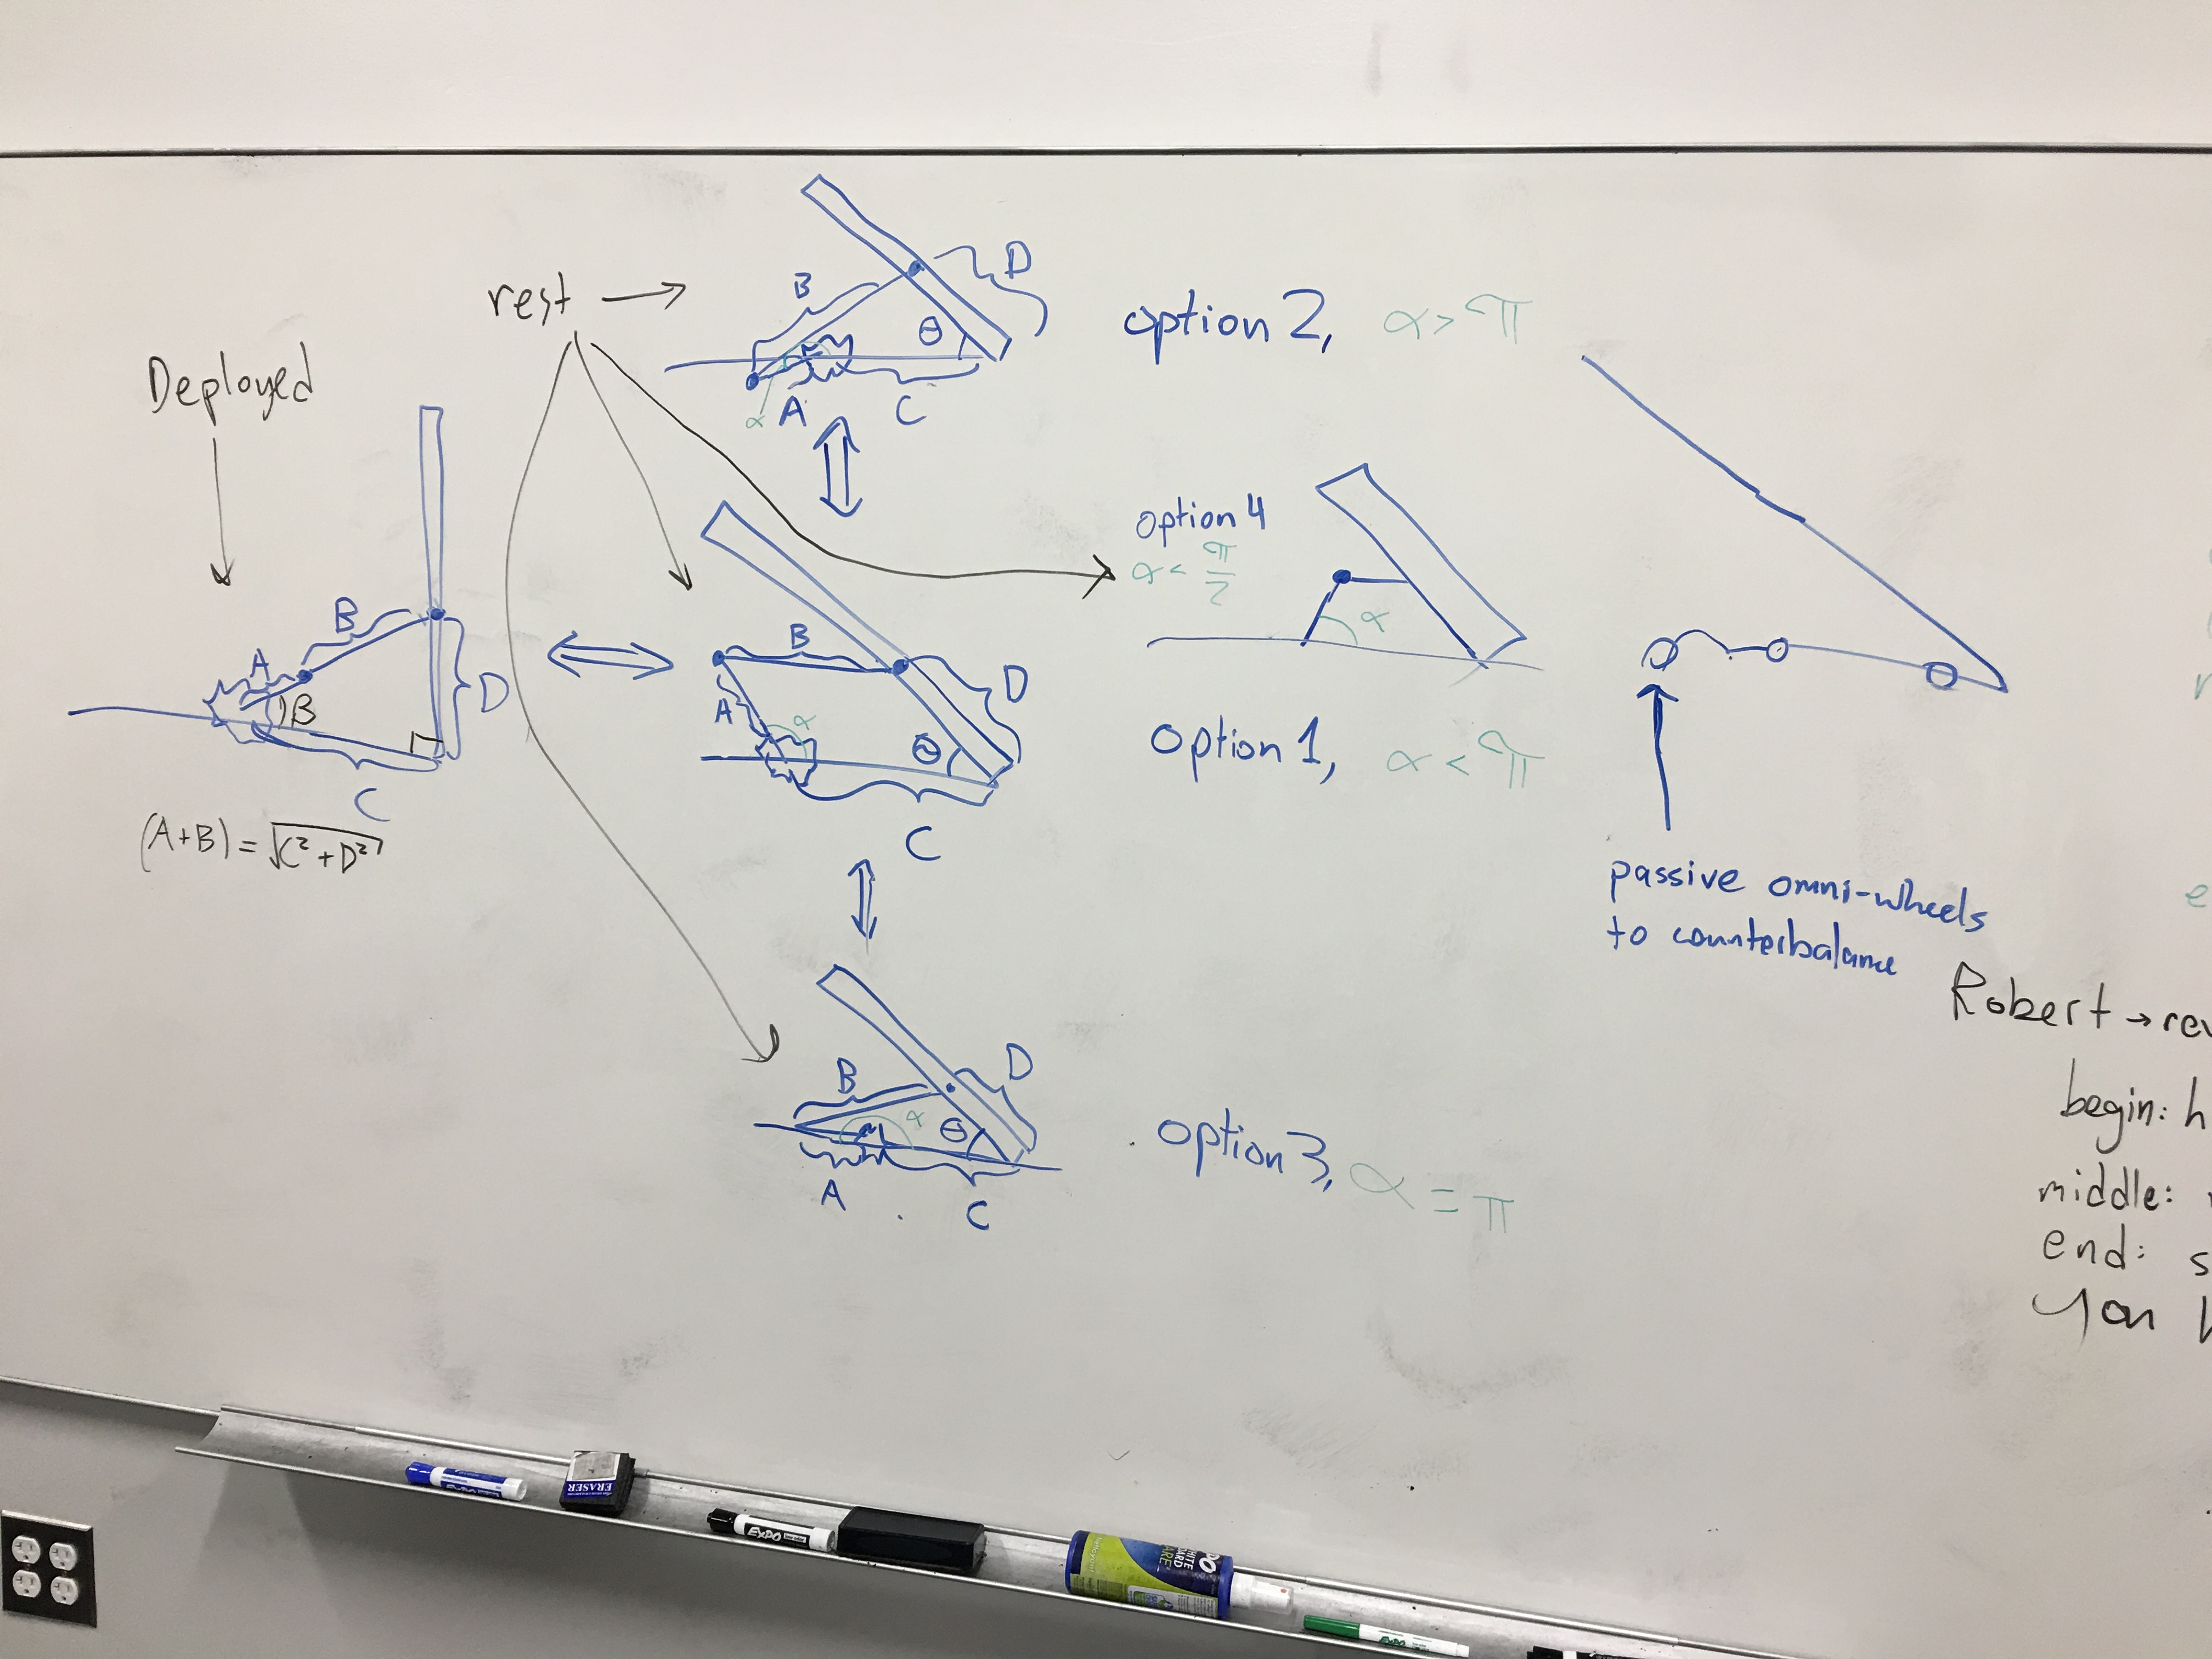 Deployed
A
B
B
D
C
(A+B) = √C²+D²
rest →
B
D
θ
α
A
C
option 2, α > π
B
A
α
θ
D
C
option 1, α < π
option 4
α < π/2
α
B
D
α
θ
A
C
option 3, α = π
passive omni-wheels
to counterbalance
Robert → rev
begin: h
middle:
end: s
You
ERASER
EXPO
EXPO